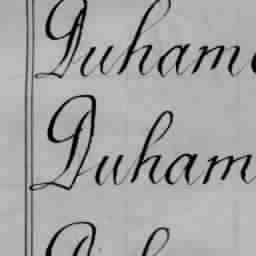 Duham
Duham